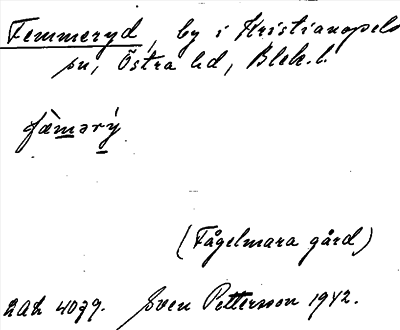 Femmeryd, by i Kristianopels
sn, Östra hd, Blek. l.
fæ̀mərý
(Fågelmara gård)
Sven Petterson 1942.